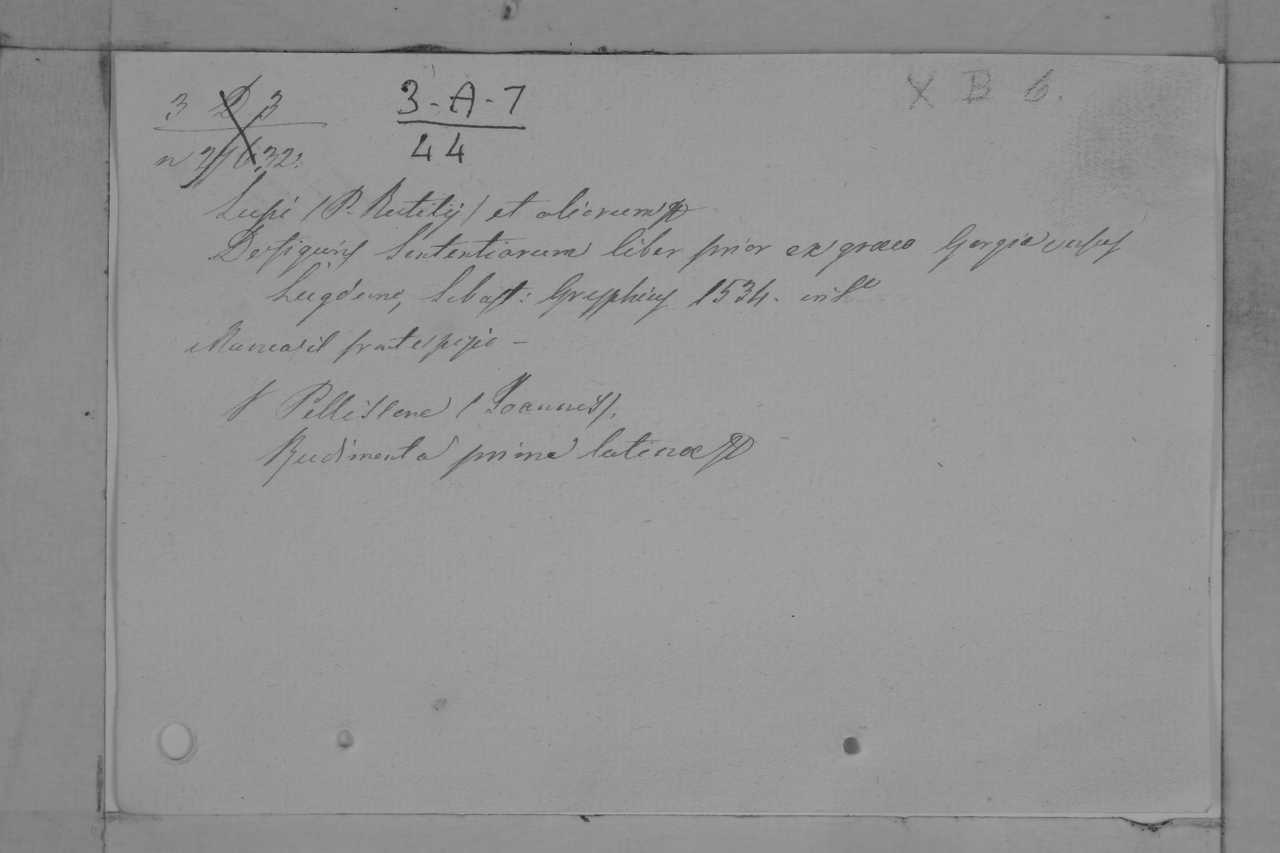 3 D 3
3-A-7
X B 6.
44
Lupi (P. Rutilij) et aliorum
De figuris Sententiarum liber prior ex græco Gorgia versus
Lugduni, Sebast: Gryphius 1534. in 8º
Manca il frontespizio -
Pellissone (Joannes),
Rudimenta prima latinæ